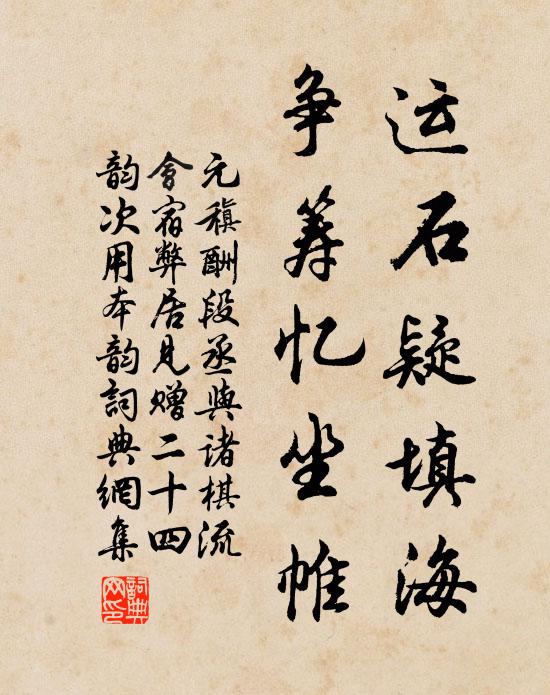 运石疑填海
争筹忆坐帷
元稹酬段丞與诸棋流
會宿弊居見赠二十四
韵次用本韵詞典網集
詞典网印